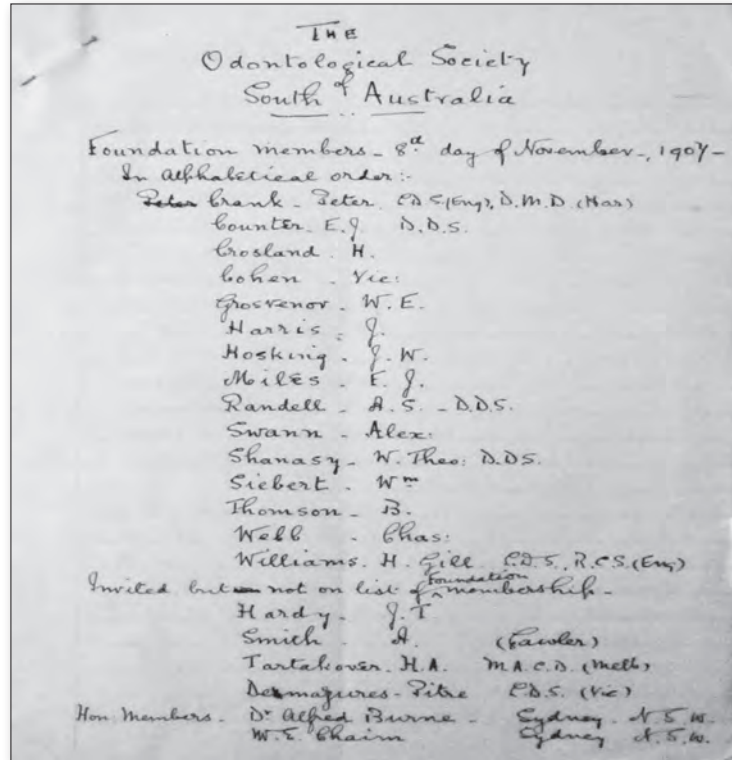 The
Odontological Society
of
South Australia
Foundation members - 8th day of November -, 1907 -
In Alphabetical order:-
Peter Crank - Peter. L.D.S (Eng), D.M.D. (Har)
Counter. E.J. D.D.S.
Crosland. H.
Cohen. Vic:
Grosvenor. W.E.
Harris. J.
Hosking. J.W.
Miles. E.J.
Randell - A.S. - D.D.S.
Swann - Alex:
Shanasy - W. Theo: D.D.S.
Siebert. Wm
Thomson - B.
Webb - Chas:
Williams. H. Gill L.D.S., R.C.S. (Eng)
Invited but not on list of Foundation membership -
Hardy - J.T
Smith - A. (Gawler)
Tartakover. H.A. M.A.C.D. (Melb)
Pitre L.D.S. (Vic)
Hon. Members. Dr Alfred Burne - Sydney. N.S.W.
W.E. Chaim Sydney N.S.W.